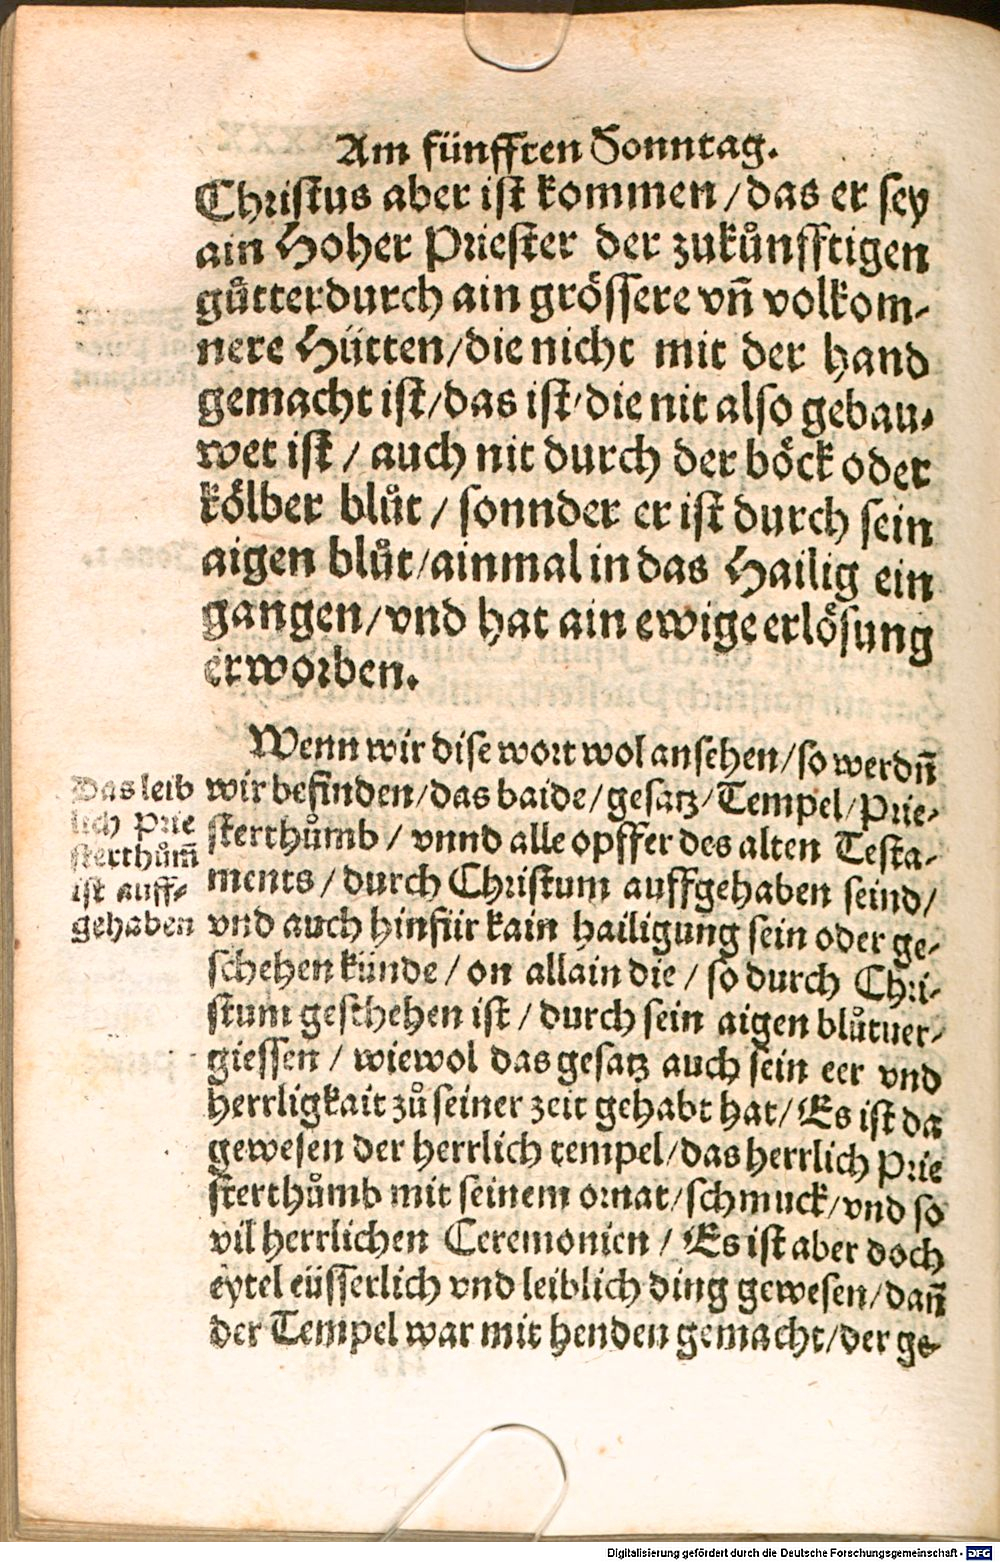 Am fünfften Sonntag.
Christus aber ist kommen / das er sey
ain Hoher Priester der zukůnfftigen
gůtter durch ain grössere vn̄ volkom-
nere Hütten / die nicht mit der hand
gemacht ist / das ist / die nit also gebau-
wet ist / auch nit durch der böck oder
kölber blůt / sonnder er ist durch sein
aigen blůt / ainmal in das Hailig ein
gangen / vnd hat ain ewige erlösung
erworben.
Wenn wir dise wort wol ansehen / so werdn̄
wir befinden / das baide / gesatz / Tempel / Prie-
sterthůmb / vnnd alle opffer des alten Testa-
ments / durch Christum auffgehaben seind /
vnd auch hinfür kain hailigung sein oder ge-
schehen künde / on allain die / so durch Chri-
stum geschehen ist / durch sein aigen blůtuer-
giessen / wiewol das gesatz auch sein eer vnd
herrligkait zů seiner zeit gehabt hat / Es ist da
gewesen der herrlich tempel / das herrlich Prie
sterthůmb mit seinem ornat / schmuck / vnd so
vil herrlichen Ceremonien / Es ist aber doch
eytel eüsserlich vnd leiblich ding gewesen / dan̄
der Tempel war mit henden gemacht / der ge-
Das leib
lich Prie
sterthům̄
ist auff-
gehaben
Digitalisierung gefördert durch die Deutsche Forschungsgemeinschaft - DFG